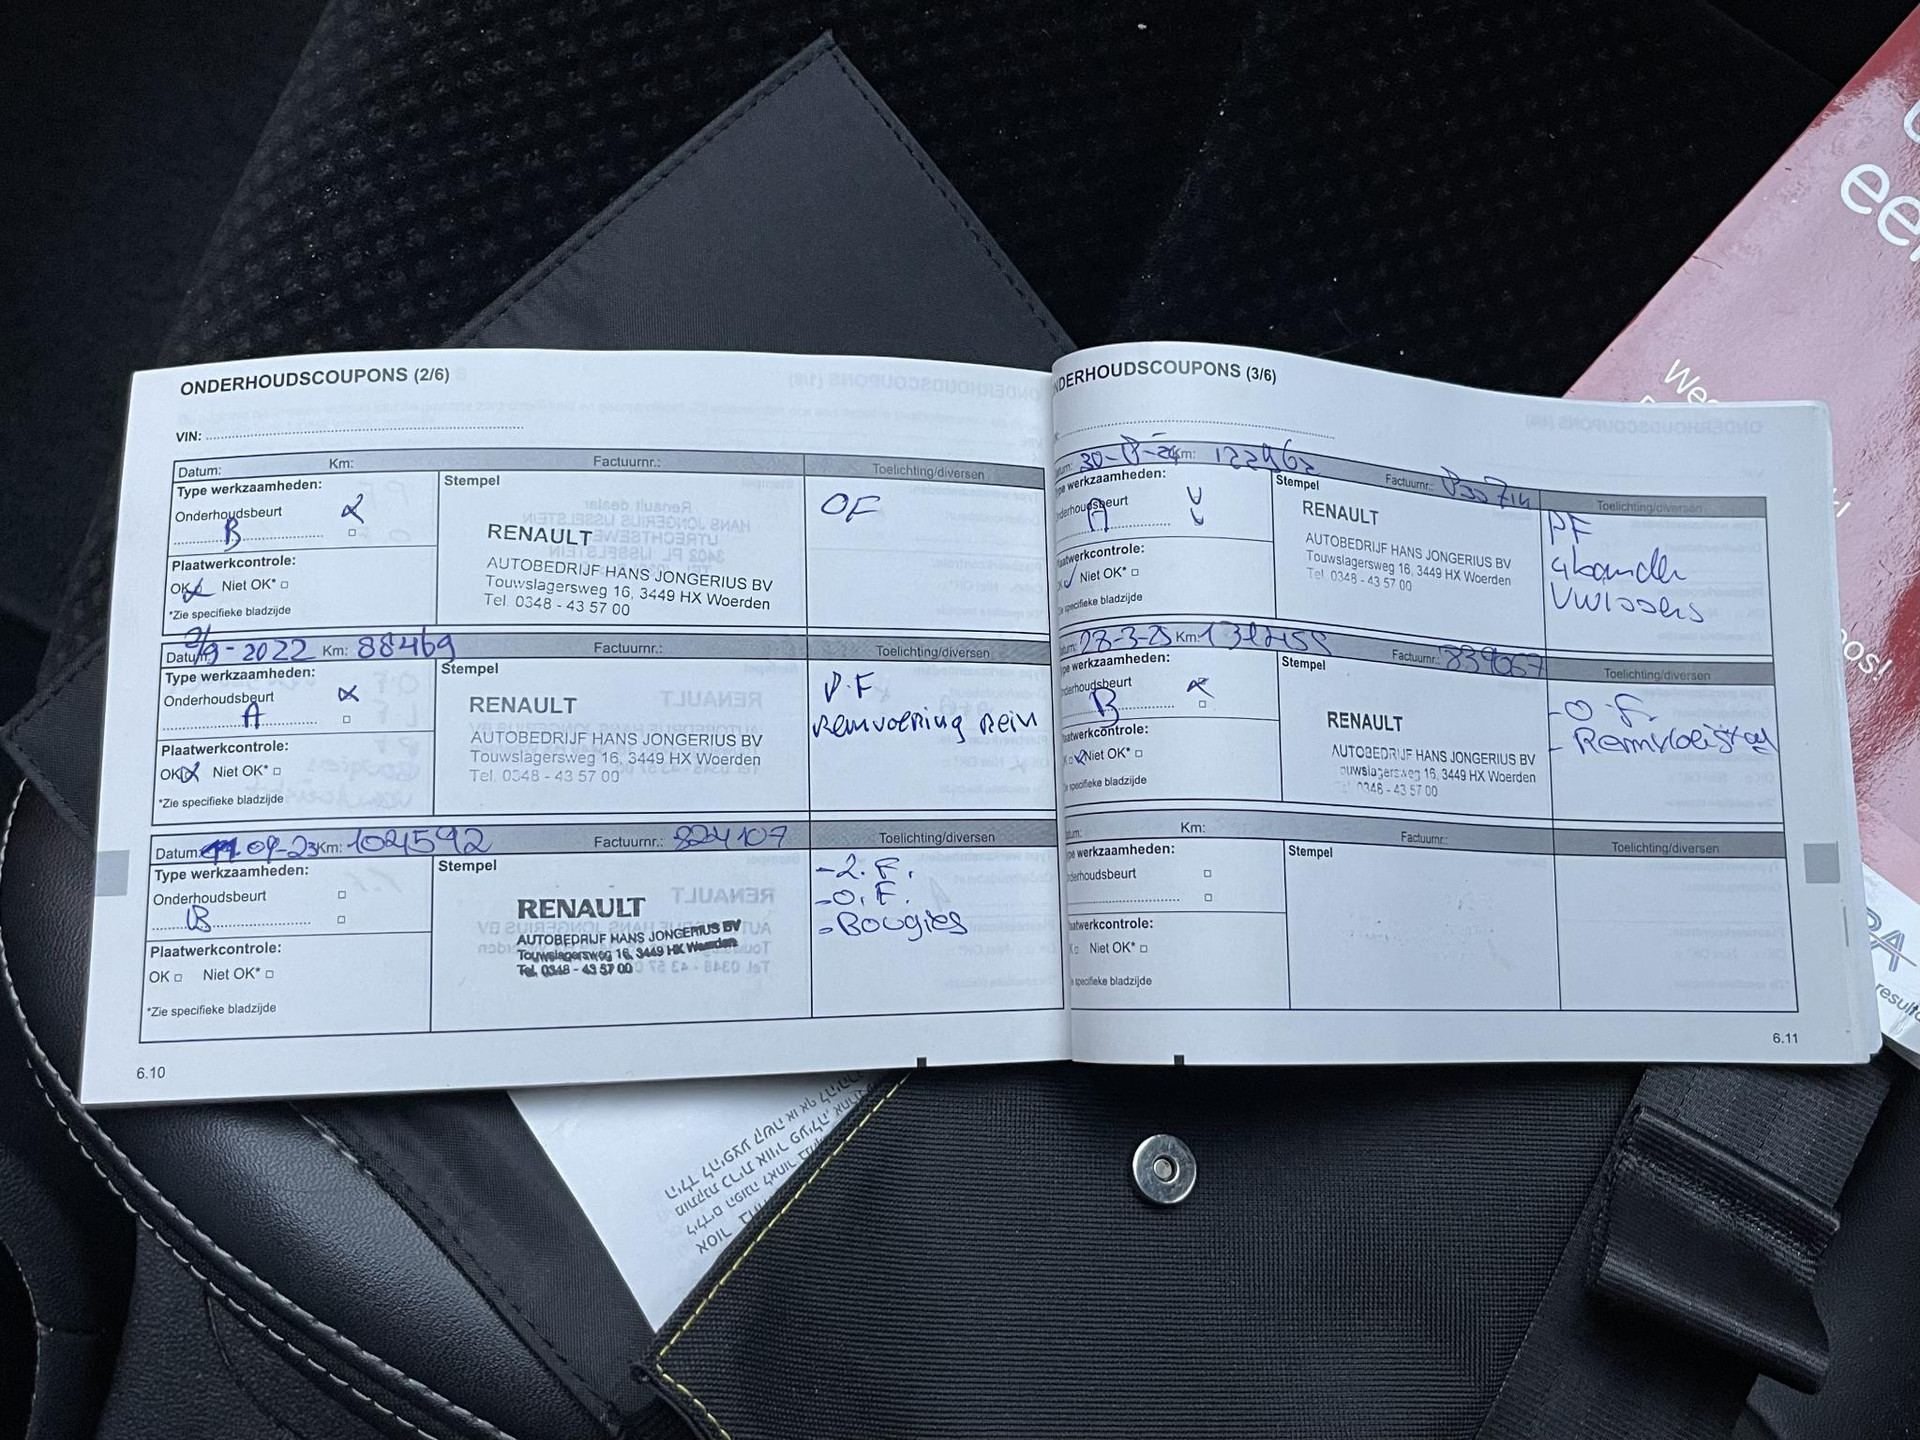 ONDERHOUDSCOUPONS (2/6)
VIN:
Datum: Km: Factuurnr.: Toelichting/diversen
Type werkzaamheden:
Onderhoudsbeurt
B
Plaatwerkcontrole:
OK Niet OK*
*Zie specifieke bladzijde
Stempel
RENAULT
AUTOBEDRIJF HANS JONGERIUS BV
Touwslagersweg 16, 3449 HX Woerden
Tel. 0348 - 43 57 00
OF
Datum: 9-2022 Km: 88469 Factuurnr.: Toelichting/diversen
Type werkzaamheden:
Onderhoudsbeurt
A
Plaatwerkcontrole:
OK Niet OK*
*Zie specifieke bladzijde
Stempel
RENAULT
AUTOBEDRIJF HANS JONGERIUS BV
Touwslagersweg 16, 3449 HX Woerden
Tel. 0348 - 43 57 00
P.F
Remvoering Rein
Datum: 09-23 Km: 104592 Factuurnr.: 824107 Toelichting/diversen
Type werkzaamheden:
Onderhoudsbeurt
B
Plaatwerkcontrole:
OK Niet OK*
*Zie specifieke bladzijde
Stempel
RENAULT
AUTOBEDRIJF HANS JONGERIUS BV
Touwslagersweg 16, 3449 HX Woerden
Tel. 0348 - 43 57 00
-2.F.
-O.F.
-Bougies
6.10
NDERHOUDSCOUPONS (3/6)
Km: 122962 Factuurnr.: Toelichting/diversen
ype werkzaamheden:
nderhoudsbeurt
A
aatwerkcontrole:
Niet OK*
e specifieke bladzijde
Stempel
RENAULT
AUTOBEDRIJF HANS JONGERIUS BV
Touwslagersweg 16, 3449 HX Woerden
Tel. 0348 - 43 57 00
PF
4banden
Vwissers
28-3-25 Km: Factuurnr.: 839067 Toelichting/diversen
ype werkzaamheden:
nderhoudsbeurt
B
aatwerkcontrole:
Niet OK*
e specifieke bladzijde
Stempel
RENAULT
AUTOBEDRIJF HANS JONGERIUS BV
ouwslagersweg 16, 3449 HX Woerden
0348 - 43 57 00
-O.F.
Km: Factuurnr.: Toelichting/diversen
ype werkzaamheden:
nderhoudsbeurt
aatwerkcontrole:
Niet OK*
e specifieke bladzijde
Stempel
6.11